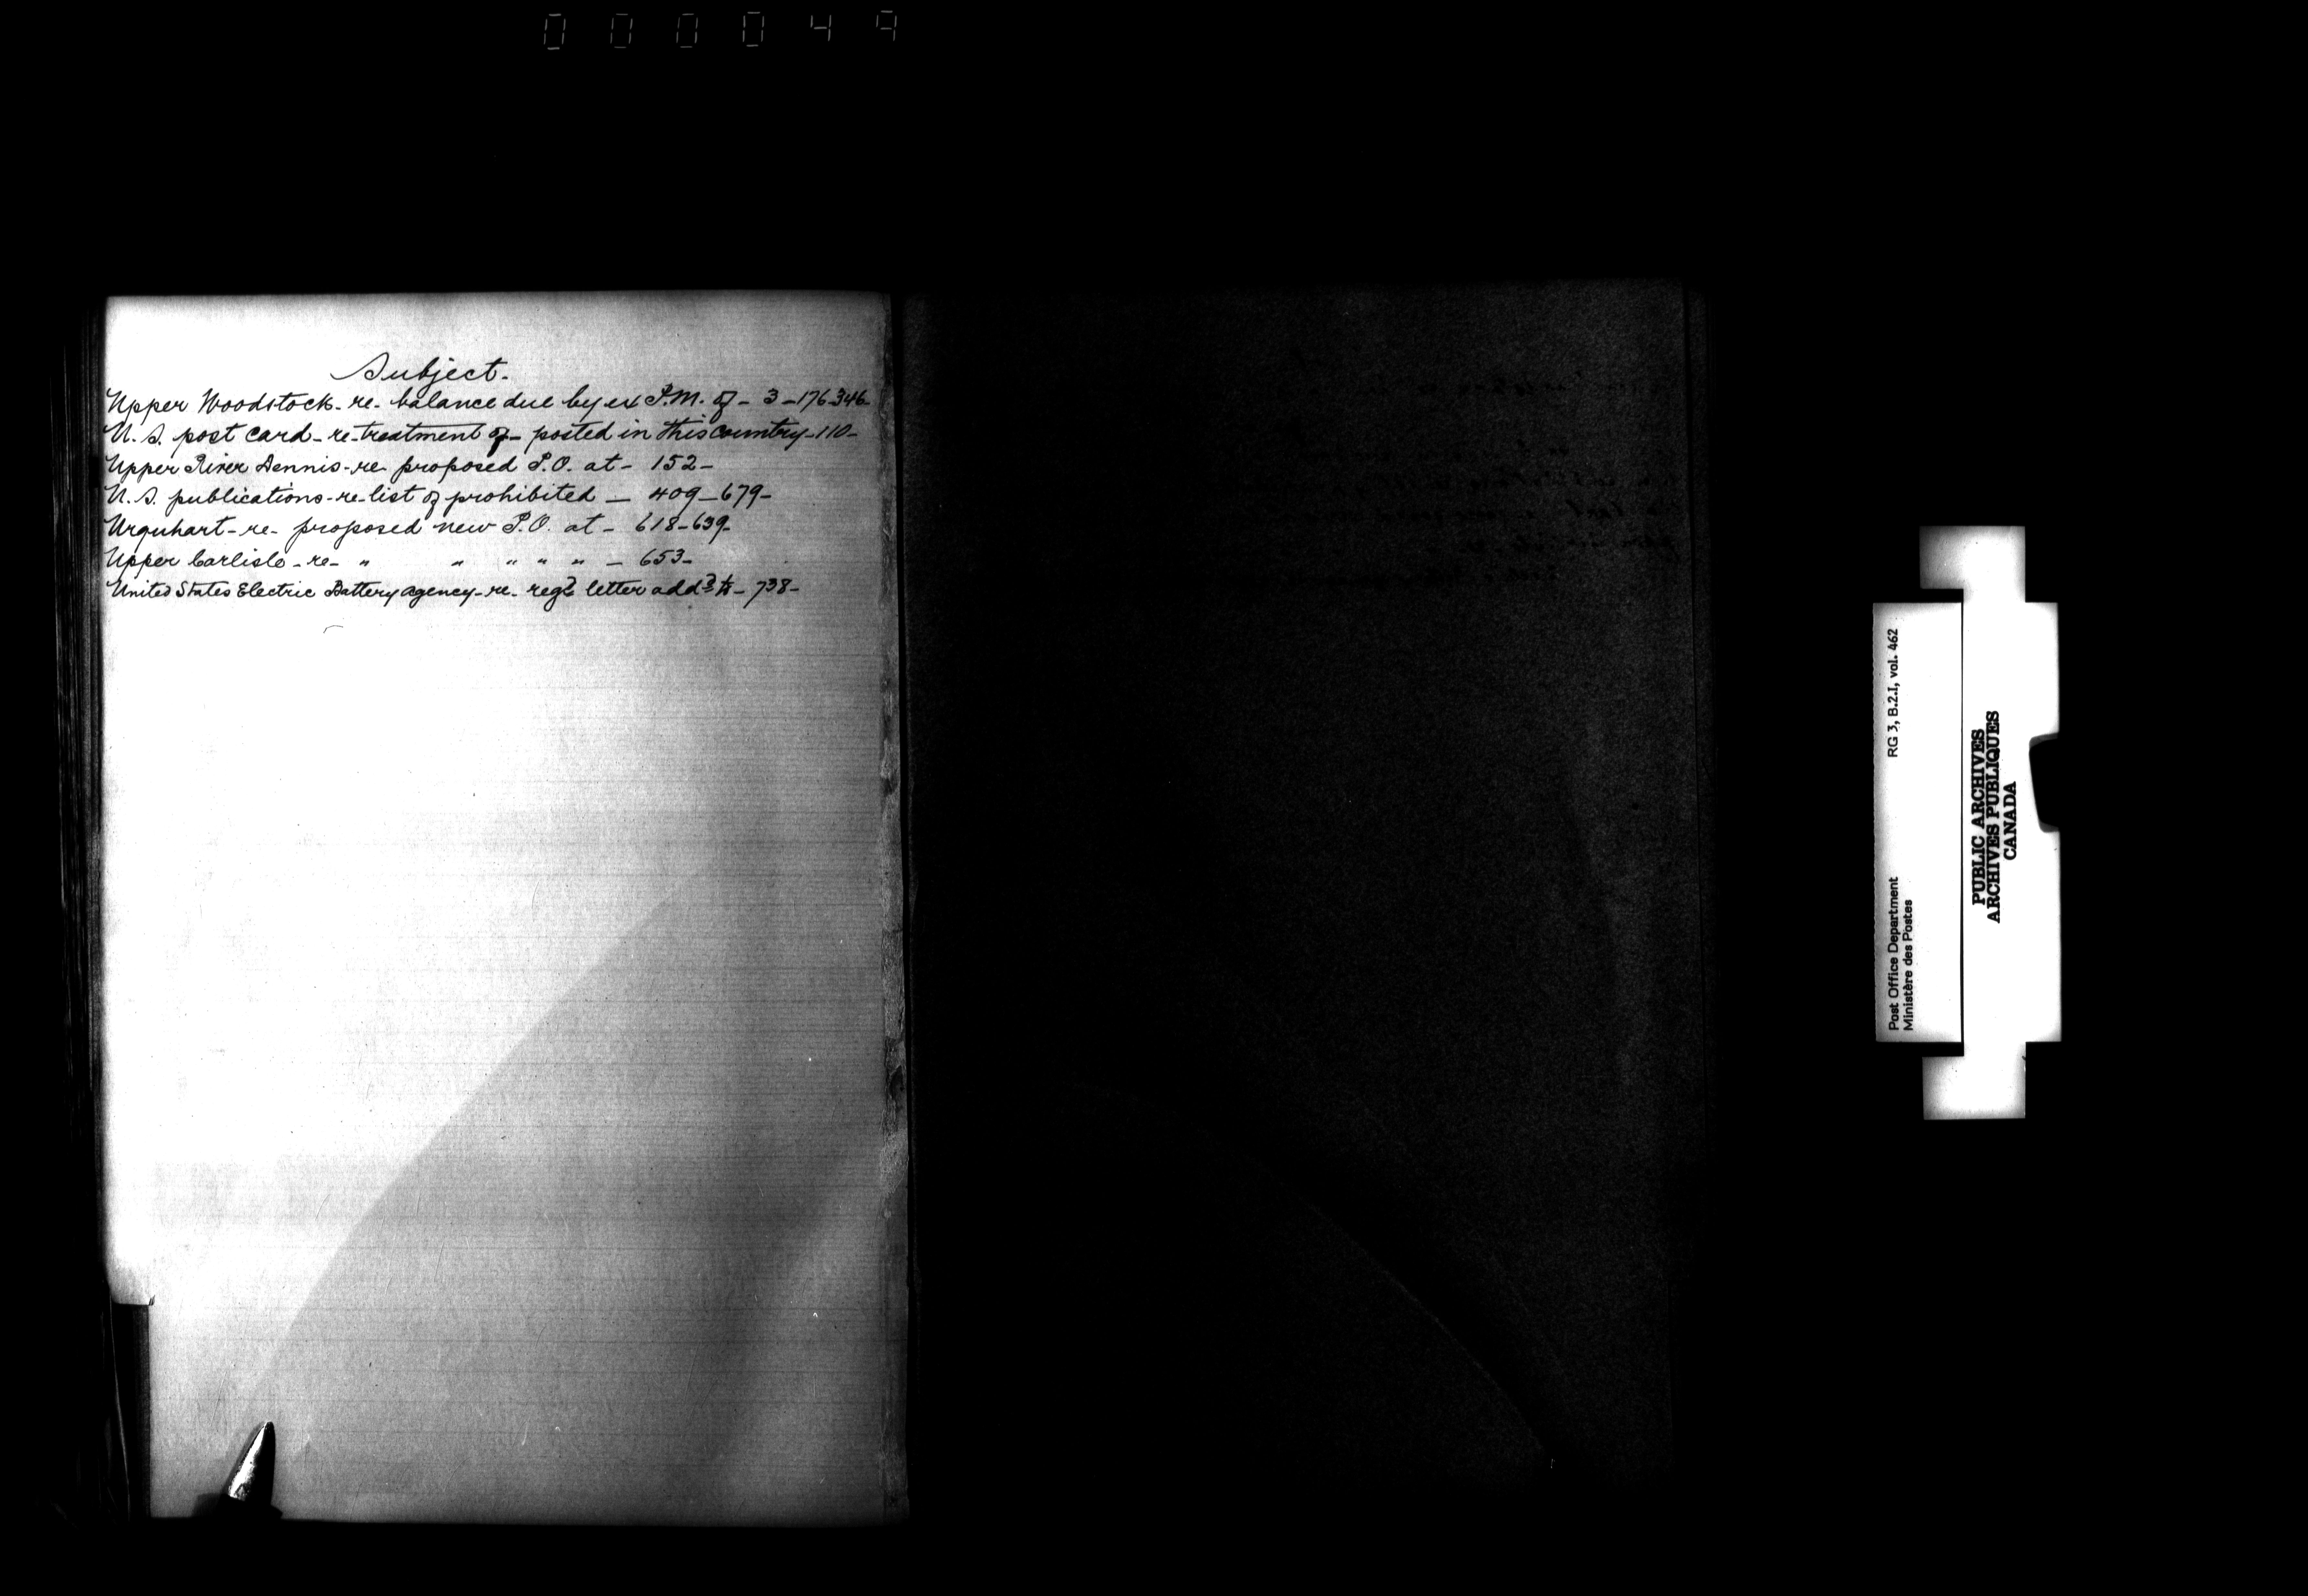 000049
Subject.
Upper Woodstock - re - balance due by ex P.M. of - 3 - 176-346-
U.S. post card - re - treatment of - posted in this country - 110 -
Upper River Dennis - re - proposed P.O. at - 152 -
U.S. publications - re - list of prohibited - 409 - 679 -
Urquhart - re - proposed new P.O. at - 618 - 639 -
Upper Carlisle - re - " " " " " - 653 -
United States Electric Battery Agency - re - regd letter addd to - 738 -
Post Office Department RG 3, B.2.I, vol. 462
Ministère des Postes
PUBLIC ARCHIVES
ARCHIVES PUBLIQUES
CANADA